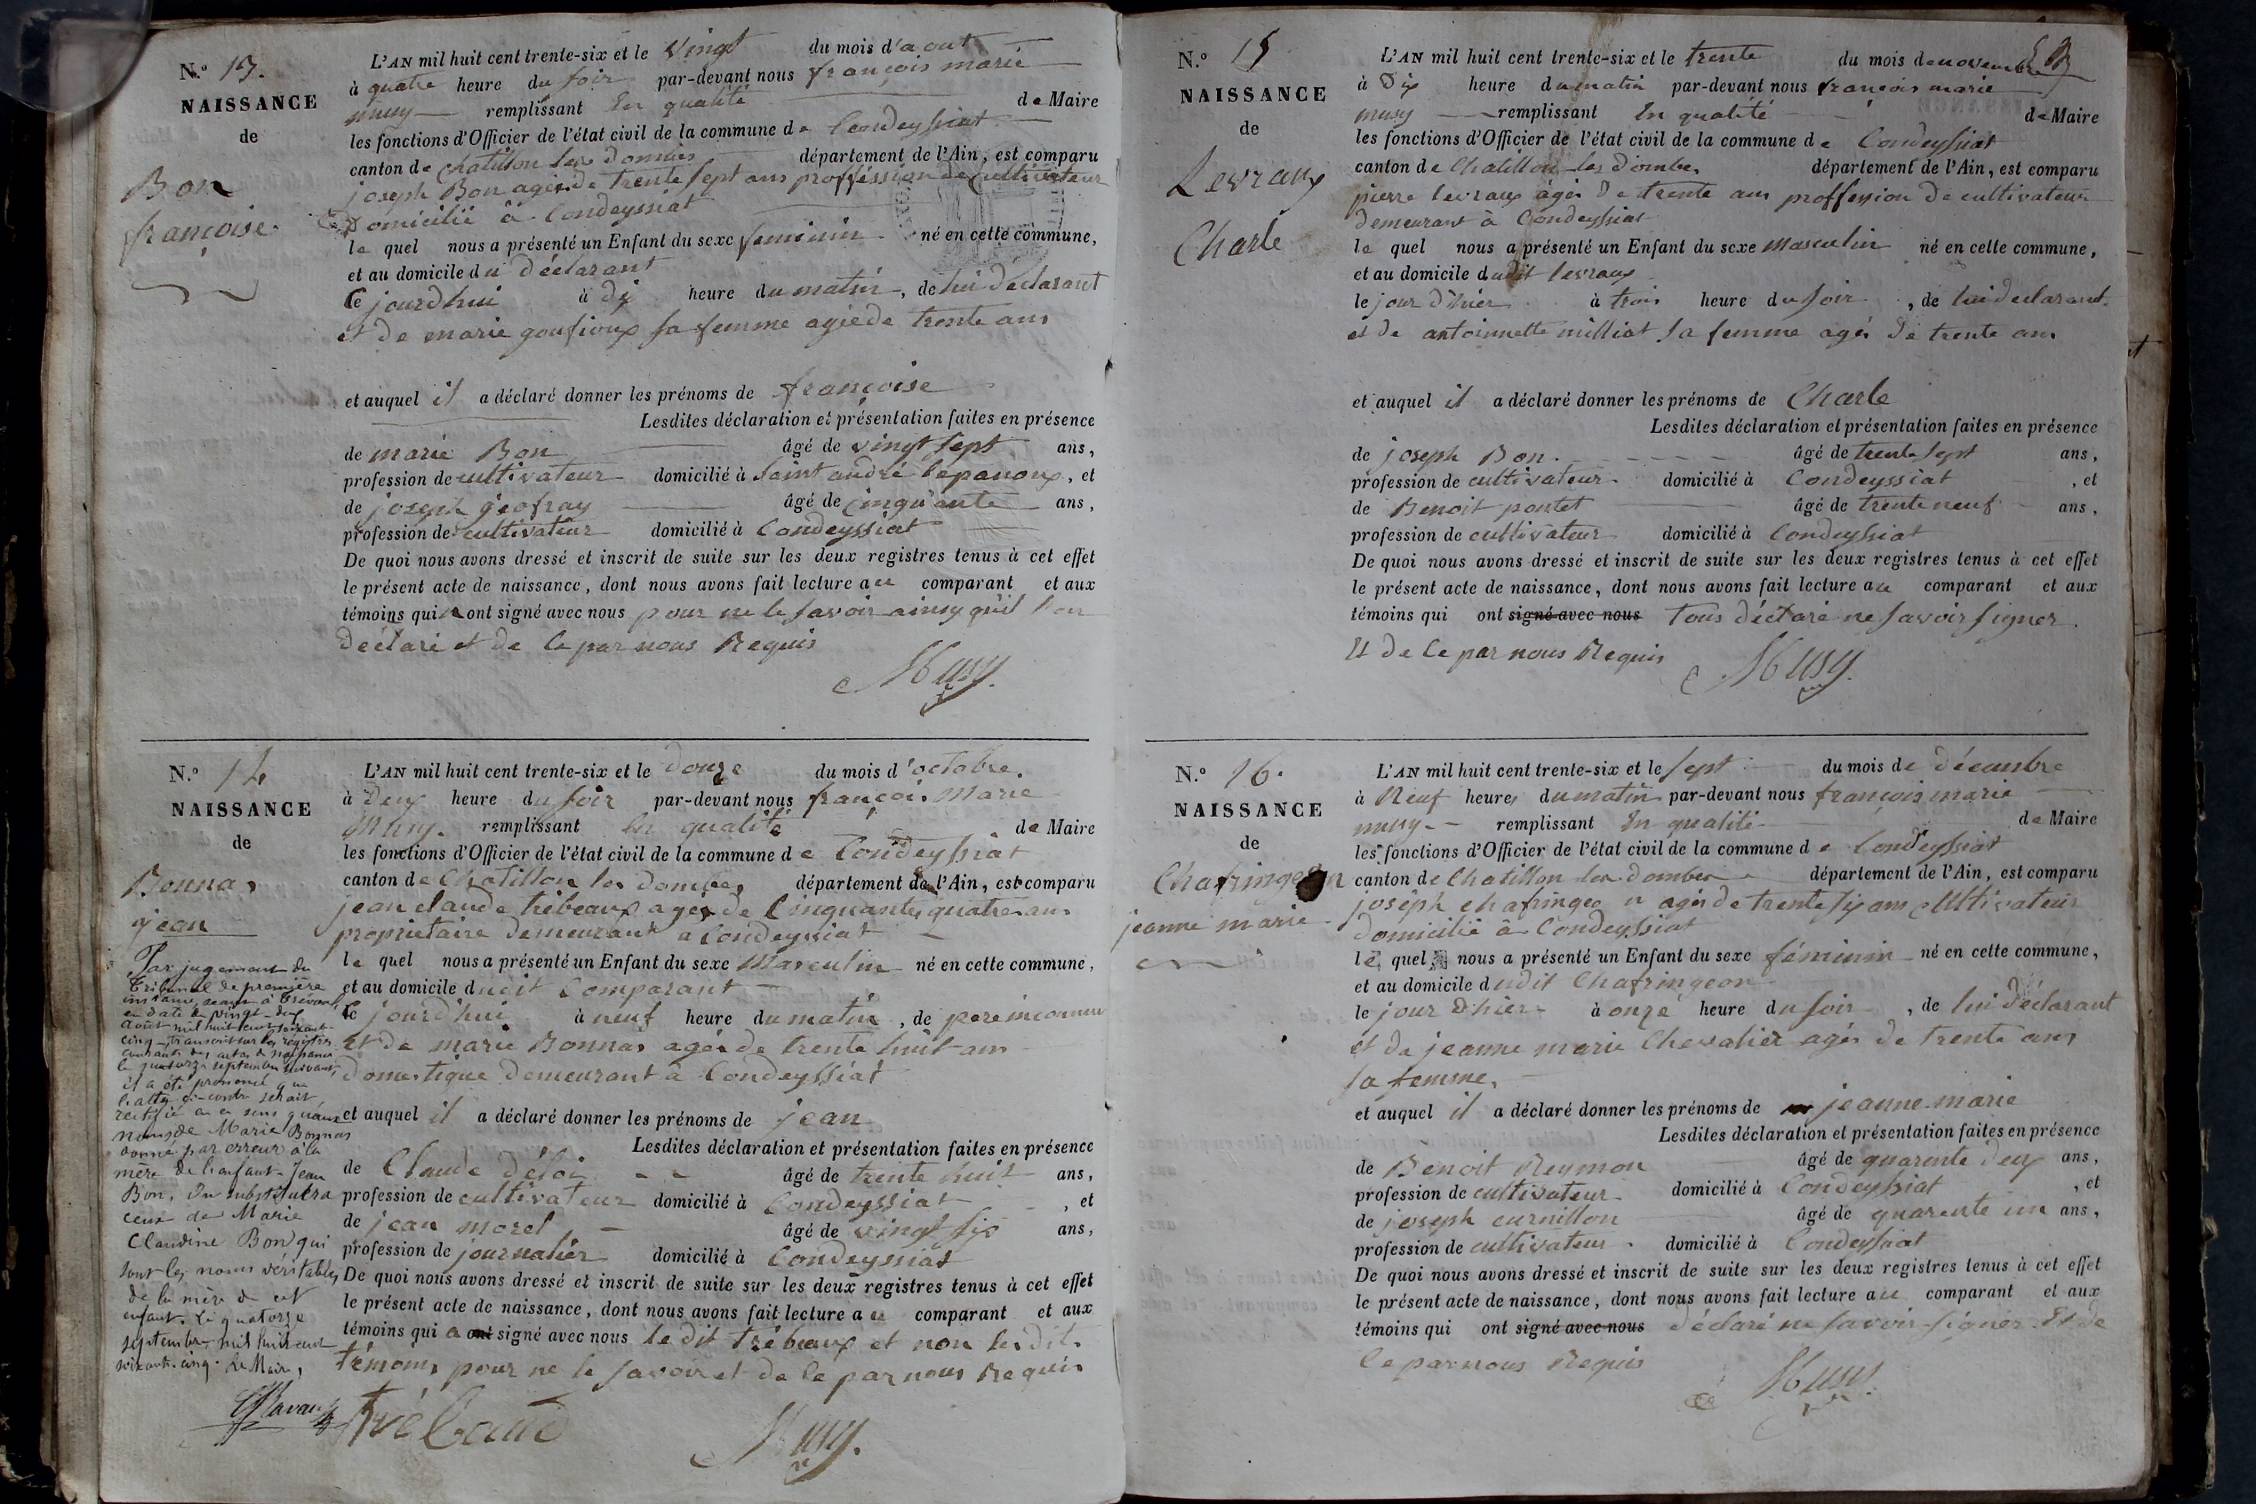 N.º 13.
NAISSANCE
de
Bon
françoise.
L'AN mil huit cent trente-six et le vingt du mois d'aout
à quatre heure du soir par-devant nous françois marie
musy remplissant en qualité de Maire
les fonctions d'Officier de l'état civil de la commune de Condeyssiat
canton de chatillon les dombes département de l'Ain, est comparu
joseph Bon agés de trente sept ans proffession de cultivateur
Domicilié à Condeyssiat
le quel nous a présenté un Enfant du sexe feminin né en cette commune,
et au domicile du déclarant
ce jourdhui à dix heure du matin, de lui déclarant
et de marie goufioux sa femme agée de trente ans
et auquel il a déclaré donner les prénoms de françoise
Lesdites déclaration et présentation faites en présence
de marie Bon âgé de vingt sept ans,
profession de cultivateur domicilié à Saint andré lepanoux, et
de joseph géofray âgé de cinquante ans,
profession de cultivateur domicilié à Condeyssiat
De quoi nous avons dressé et inscrit de suite sur les deux registres tenus à cet effet
le présent acte de naissance, dont nous avons fait lecture au comparant et aux
témoins qui n ont signé avec nous pour ne le savoir ainsy qu'il l'on
déclaré et de ce par nous Requis
Musy.
N.º 14
NAISSANCE
de
Bonnas
jean
Par jugement du
Tribunal de première
instance, séant à Trévoux,
en date du vingt-deux
août mil huit cent soixante-
cinq, transcrit sur les registres
courants des actes de naissance
le quatorze septembre suivant,
il a été prononcé que
l'acte ci-contre serait
rectifié en ce sens qu'aux
noms de Marie Bonnas
donné par erreur à la
mère de l'enfant Jean
Bon, on substituera
ceux de Marie
Claudine Bon qui
sont les noms véritables
de la mère de cet
enfant. Le quatorze
septembre mil huit cent
soixante-cinq. Le Maire,
L'AN mil huit cent trente-six et le douze du mois d'octobre.
à Deux heure du soir par-devant nous françois Marie
Musy. remplissant en qualité de Maire
les fonctions d'Officier de l'état civil de la commune de Condeyssiat
canton de Chatillon les dombes département de l'Ain, est comparu
jean claude trebeaux agés de Cinquante quatre ans
proprietaire demeurant a Condeyssiat
le quel nous a présenté un Enfant du sexe Masculin né en cette commune,
et au domicile dudit Comparant
ce jourd'hui à neuf heure du matin, de pere inconnu
et de marie Bonnas agés de trente huit ans
domestique demeurant à Condeyssiat
et auquel il a déclaré donner les prénoms de jean
Lesdites déclaration et présentation faites en présence
de Claude déloi âgé de trente huit ans,
profession de cultivateur domicilié à Condeyssiat, et
de jean morel âgé de vingt six ans,
profession de journalier domicilié à Condeyssiat
De quoi nous avons dressé et inscrit de suite sur les deux registres tenus à cet effet
le présent acte de naissance, dont nous avons fait lecture au comparant et aux
témoins qui a ont signé avec nous le dit trébeaux et non les dits
témoins pour ne le savoir et de ce par nous Requis
Trébaux
Musy.
N.º 15
NAISSANCE
de
Levraux
Charle
L'AN mil huit cent trente-six et le trente du mois de novembre
à Dix heure du matin par-devant nous françois marie
musy remplissant en qualité de Maire
les fonctions d'Officier de l'état civil de la commune de Condeyssiat
canton de Chatillon les dombes département de l'Ain, est comparu
pierre levraux agés de trente ans proffession de cultivateur
demeurant à Condeyssiat
le quel nous a présenté un Enfant du sexe Masculin né en cette commune,
et au domicile dudit levraux
le jour d'hier à trois heure du soir, de lui declarant.
et de antoinette milliat sa femme agés de trente ans
et auquel il a déclaré donner les prénoms de Charle
Lesdites déclaration et présentation faites en présence
de joseph Bon. âgé de trente sept ans,
profession de cultivateur domicilié à Condeyssiat, et
de Benoit pontet âgé de trente neuf ans,
profession de cultivateur domicilié à Condeyssiat
De quoi nous avons dressé et inscrit de suite sur les deux registres tenus à cet effet
le présent acte de naissance, dont nous avons fait lecture au comparant et aux
témoins qui ont signé avec nous Tous déclaré ne savoir signer.
Et de Ce par nous Requis
Musy.
N.º 16.
NAISSANCE
de
Chafringeon
jeanne marie
L'AN mil huit cent trente-six et le sept du mois de décembre
à Neuf heures du matin par-devant nous françois marie
musy remplissant en qualité de Maire
les fonctions d'Officier de l'état civil de la commune de Condeyssiat
canton de Chatillon les dombes département de l'Ain, est comparu
joseph chafringeon agés de trente six ans cultivateur
domicilié à Condeyssiat
le quel nous a présenté un Enfant du sexe féminin né en cette commune,
et au domicile dudit Chafringeon
le jour d'hier à onze heure du soir, de lui déclarant
et de jeanne marie Chevalier agés de trente ans
sa femme.
et auquel il a déclaré donner les prénoms de jeanne marie
Lesdites déclaration et présentation faites en présence
de Benoit Reymon âgé de quarente deux ans,
profession de cultivateur domicilié à Condeyssiat, et
de joseph curnillon âgé de quarente un ans,
profession de cultivateur. domicilié à Condeyssiat
De quoi nous avons dressé et inscrit de suite sur les deux registres tenus à cet effet
le présent acte de naissance, dont nous avons fait lecture au comparant et aux
témoins qui ont signé avec nous déclaré ne savoir signer Et de
Ce par nous Requis
Musy.